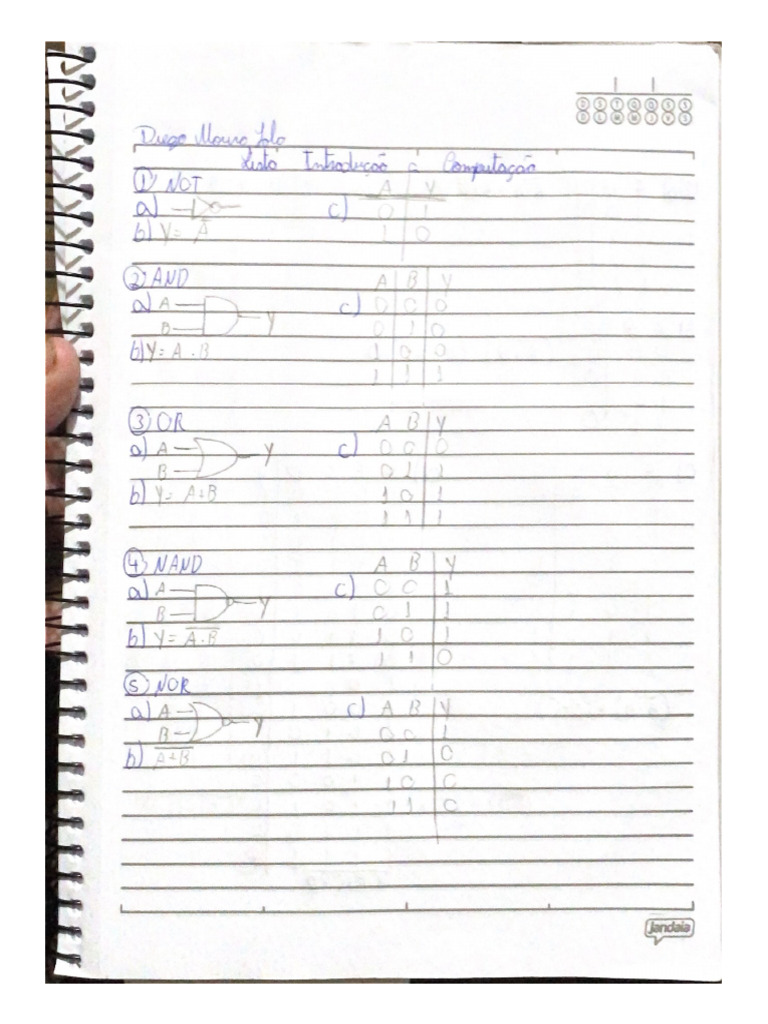 D S T Q Q S S
D L M M J V S
Diego Moura
Lista Introdução a Computação
① NOT
A Y
a) c) 0 1
b) Y = A̅ 1 0
② AND
A B Y
a) A Y c) 0 0 0
B 0 1 0
b) Y = A . B 1 0 0
1 1 1
③ OR
A B Y
a) A Y c) 0 0 0
B 0 1 1
b) Y = A+B 1 0 1
1 1 1
④ NAND
A B Y
a) A c) 0 0 1
B Y 0 1 1
b) Y = A̅ ̅.̅ ̅B̅ 1 0 1
1 1 0
⑤ NOR
a) A c) A B Y
B Y 0 0 1
b) A̅+̅B̅ 0 1 0
1 0 0
1 1 0
Jandaia